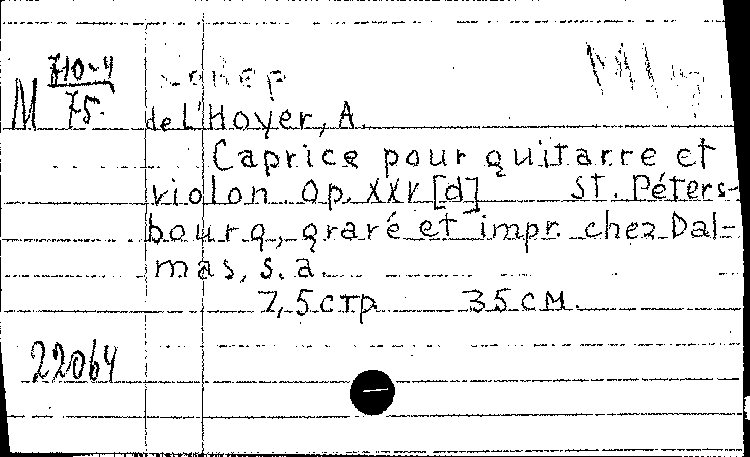 M 710-4
75.
de L'Hoyer, A.
Caprice pour quitarre et
violon. Op. XXV [d] St. Péters-
bourq, qraré et impr. chez Dal-
mas, s. a.
7,5 стр. 35 см.
22064